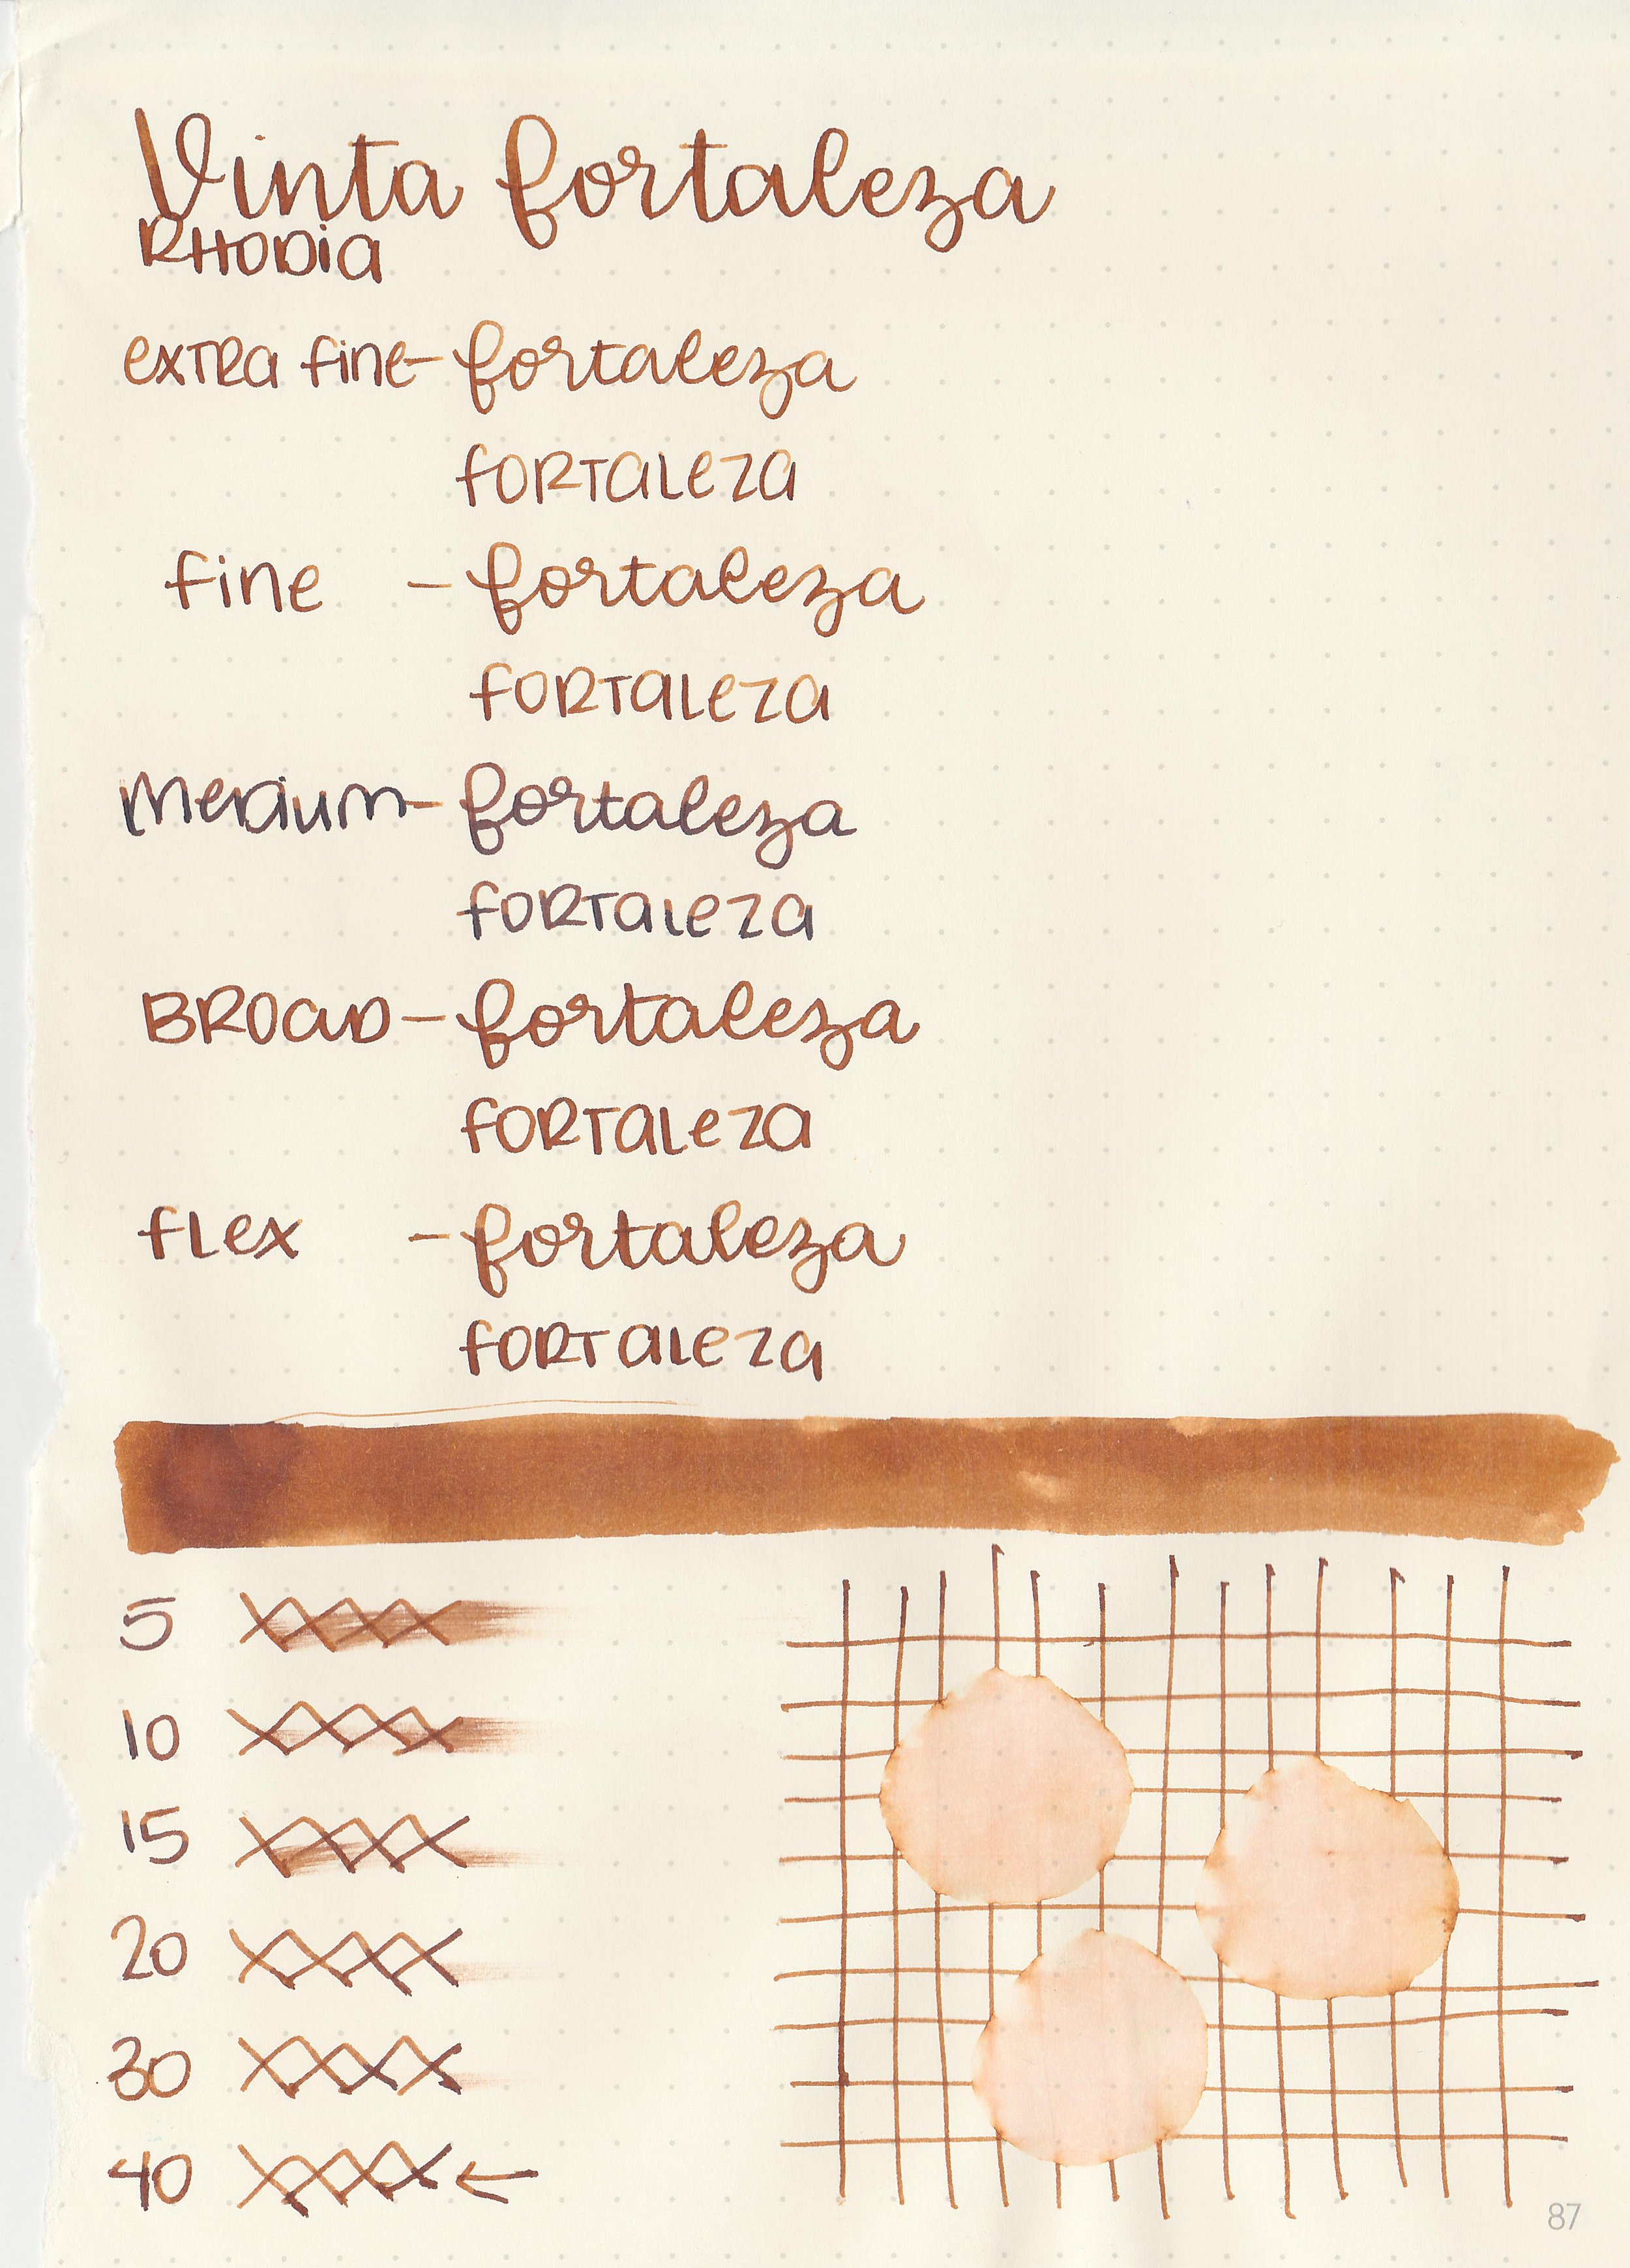 Vinta fortaleza
RHODIA
extra fine - fortaleza
fORTaLeZa
fine - fortaleza
fORTaLeZa
Medium - fortaleza
fORTaLeZa
BROaD - fortaleza
fORTaLeZa
fLex - fortaleza
fORTaLeZa
5
10
15
20
30
40 ←
87